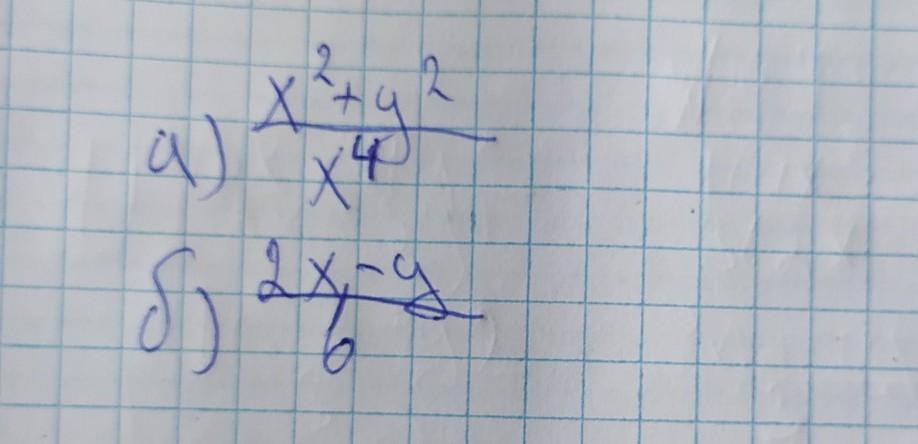 а) (x²+y²)/x⁴
б) (2x-y)/6